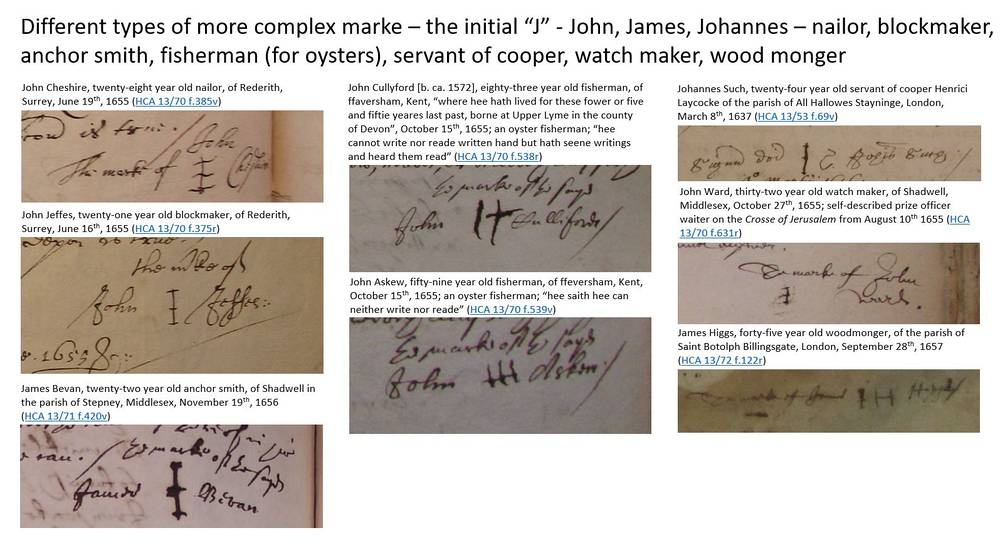 Different types of more complex marke – the initial “J” - John, James, Johannes – nailor, blockmaker,
anchor smith, fisherman (for oysters), servant of cooper, watch maker, wood monger
John Cheshire, twenty-eight year old nailor, of Rederith,
Surrey, June 19th, 1655 (HCA 13/70 f.385v)
John
The marke of
John Jeffes, twenty-one year old blockmaker, of Rederith,
Surrey, June 16th, 1655 (HCA 13/70 f.375r)
the m̃ke of
John Jeffes:
James Bevan, twenty-two year old anchor smith, of Shadwell in
the parish of Stepney, Middlesex, November 19th, 1656
(HCA 13/71 f.420v)
marke of the sayd
James Bevan
John Cullyford [b. ca. 1572], eighty-three year old fisherman, of
ffaversham, Kent, “where hee hath lived for these fower or five
and fiftie yeares last past, borne at Upper Lyme in the county
of Devon”, October 15th, 1655; an oyster fisherman; “hee
cannot write nor reade written hand but hath seene writings
and heard them read” (HCA 13/70 f.538r)
marke of the sayd
John Culliford
John Askew, fifty-nine year old fisherman, of ffeversham, Kent,
October 15th, 1655; an oyster fisherman; “hee saith hee can
neither write nor reade” (HCA 13/70 f.539v)
marke of the sayd
John Askew
Johannes Such, twenty-four year old servant of cooper Henrici
Laycocke of the parish of All Hallowes Stayninge, London,
March 8th, 1637 (HCA 13/53 f.69v)
John Ward, thirty-two year old watch maker, of Shadwell,
Middlesex, October 27th, 1655; self-described prize officer
waiter on the Crosse of Jerusalem from August 10th 1655 (HCA
13/70 f.631r)
marke of John
Ward.
James Higgs, forty-five year old woodmonger, of the parish of
Saint Botolph Billingsgate, London, September 28th, 1657
(HCA 13/72 f.122r)
marke of